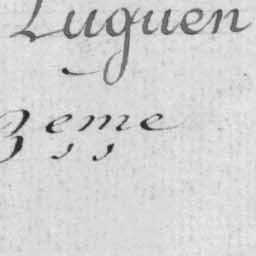 Luguen
3 eme